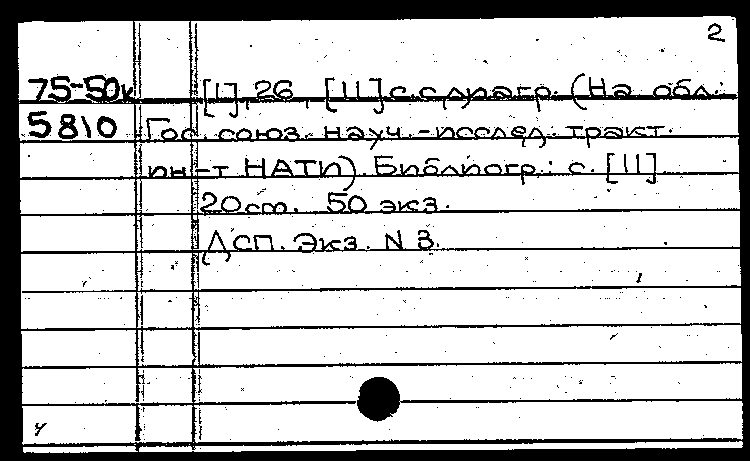 2
75-50к [I], 26, [II] с.с диагр. (На обл.:
5810 Гос. союз. науч.-исслед. тракт.
ин-т НАТИ). Библиогр.: с. [II]
20см. 50 экз.
ДСП. Экз. N 3.